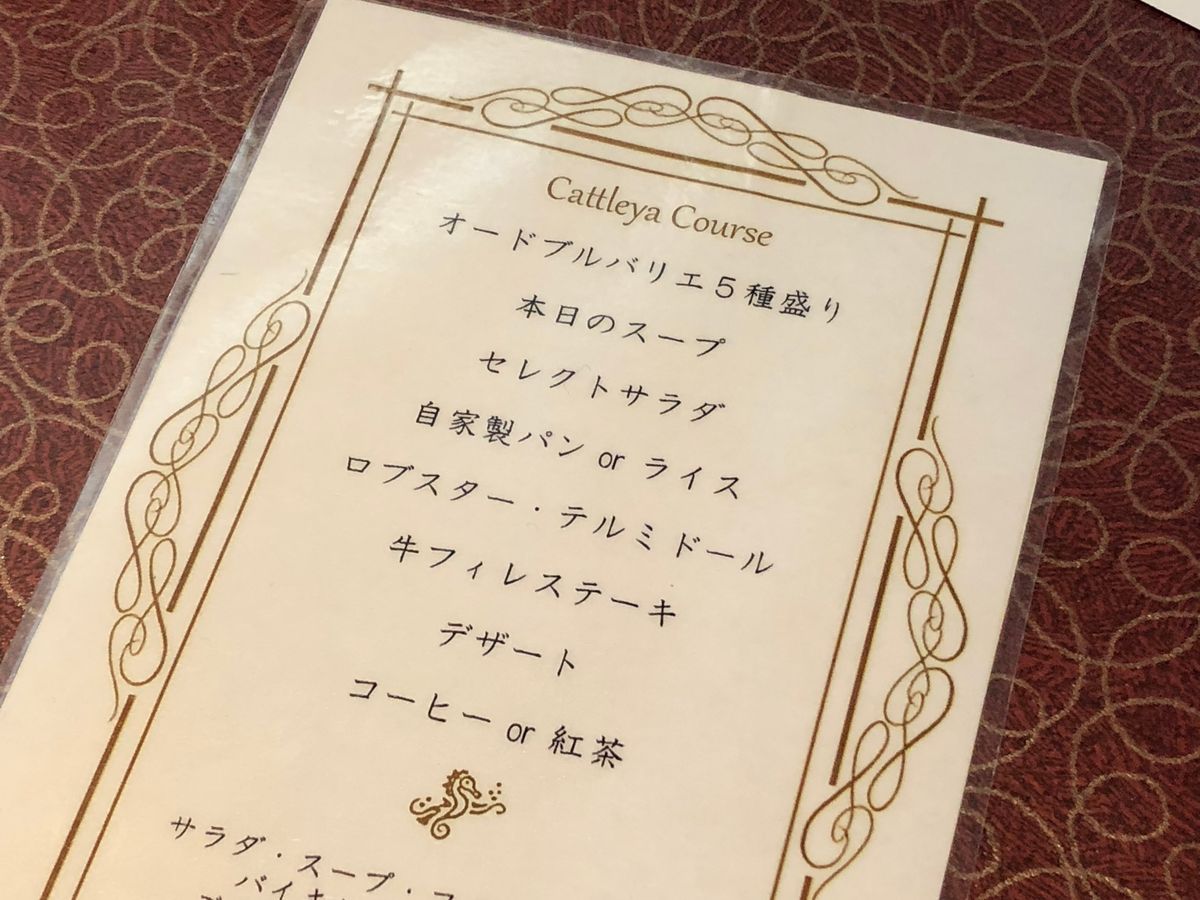 Cattleya Course
オードブルバリエ５種盛り
本日のスープ
セレクトサラダ
自家製パン or ライス
ロブスター・テルミドール
牛フィレステーキ
デザート
コーヒー or 紅茶
サラダ・スープ・